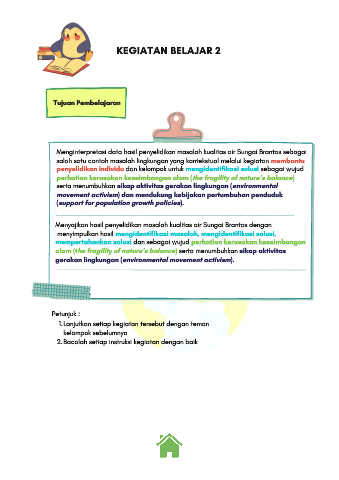 KEGIATAN BELAJAR 2
Tujuan Pembelajaran
Menginterpretasi data hasil penyelidikan masalah kualitas air Sungai Brantas sebagai
salah satu contoh masalah lingkungan yang kontekstual melalui kegiatan membantu
penyelidikan individu dan kelompok untuk mengidentifikasi solusi sebagai wujud
perhatian kerusakan keseimbangan alam (the fragility of nature's balance)
serta menumbuhkan sikap aktivitas gerakan lingkungan (environmental
movement activism) dan mendukung kebijakan pertumbuhan penduduk
(support for population growth policies).
Menyajikan hasil penyelidikan masalah kualitas air Sungai Brantas dengan
menyimpulkan hasil mengidentifikasi masalah, mengidentifikasi solusi,
mempertahankan solusi dan sebagai wujud perhatian kerusakan keseimbangan
alam (the fragility of nature's balance) serta menumbuhkan sikap aktivitas
gerakan lingkungan (environmental movement activism).
Petunjuk :
1. Lanjutkan setiap kegiatan tersebut dengan teman
kelompok sebelumnya
2. Bacalah setiap instruksi kegiatan dengan baik